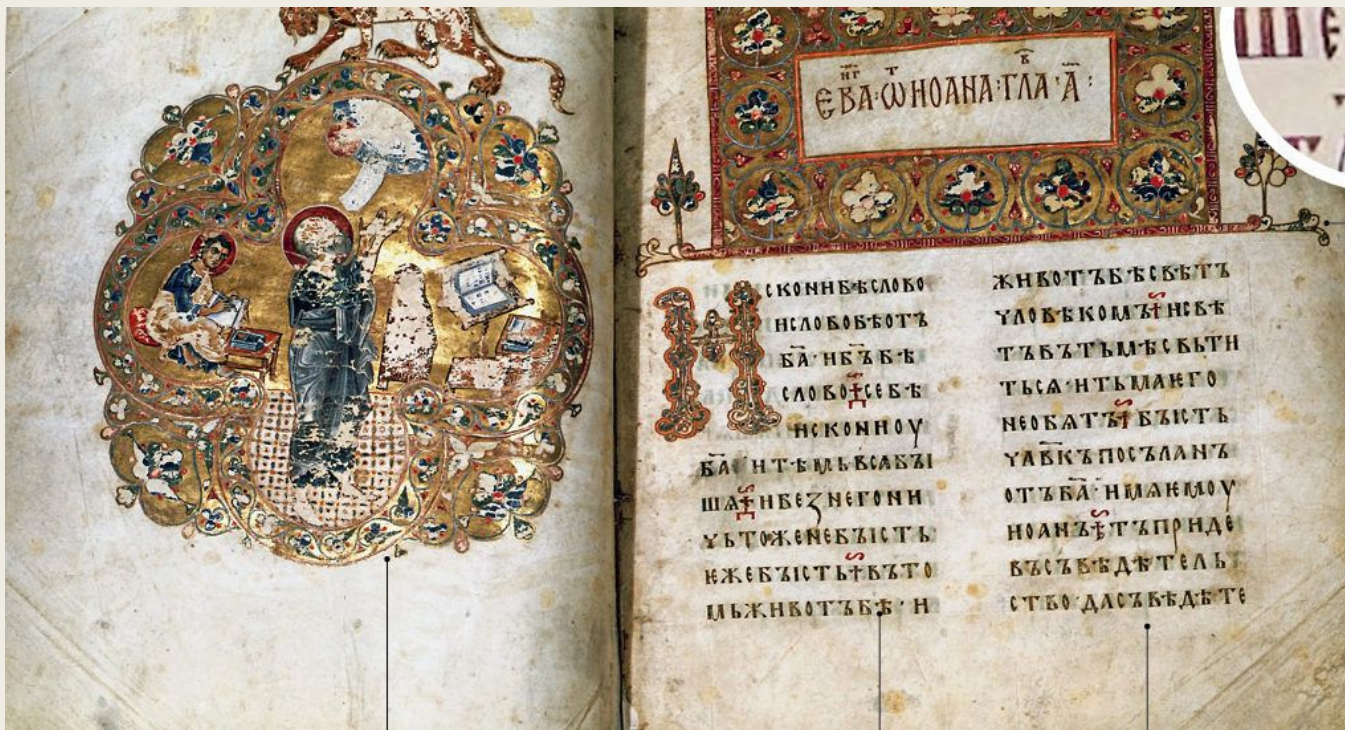 ЕВА·ѠНОАНА·ГЛА·А҃:
ИСКОНИБѢСЛОВО
ИСЛОВОБѢОТЪ
БА҃·ИБ҃ЪБѢ
СЛОВО·СЕБѢ
ИСКОНИОУ
БА҃·ИТѢМЬВСАБЪІ
ШѦ·ИБЕꙀНЕГОНИ
ЧЬТОЖЕНЕБЪІСТЬ
ѤЖЕБЪІСТЬ·ВЪТО
МЬЖИВОТЪБѢ·И
ЖИВОТЪБѢСВѢТЪ
ЧЛОВѢКОМЪ·ИСВѢ
ТЪВЪТЬМѢСВЬТИ
ТЬСѦ·ИТЬМАѤГО
НЕОБѦТЪ·БЪІСТЬ
ЧЛВ҃КЪПОСЪЛАНЪ
ОТЪБА҃·ИМѦѤМОУ
ИОАНЪ·ТЪПРИДЕ
ВЪСЪВѢДѢТЕЛЬ
СТВО·ДАСЪВѢДѢТЕ